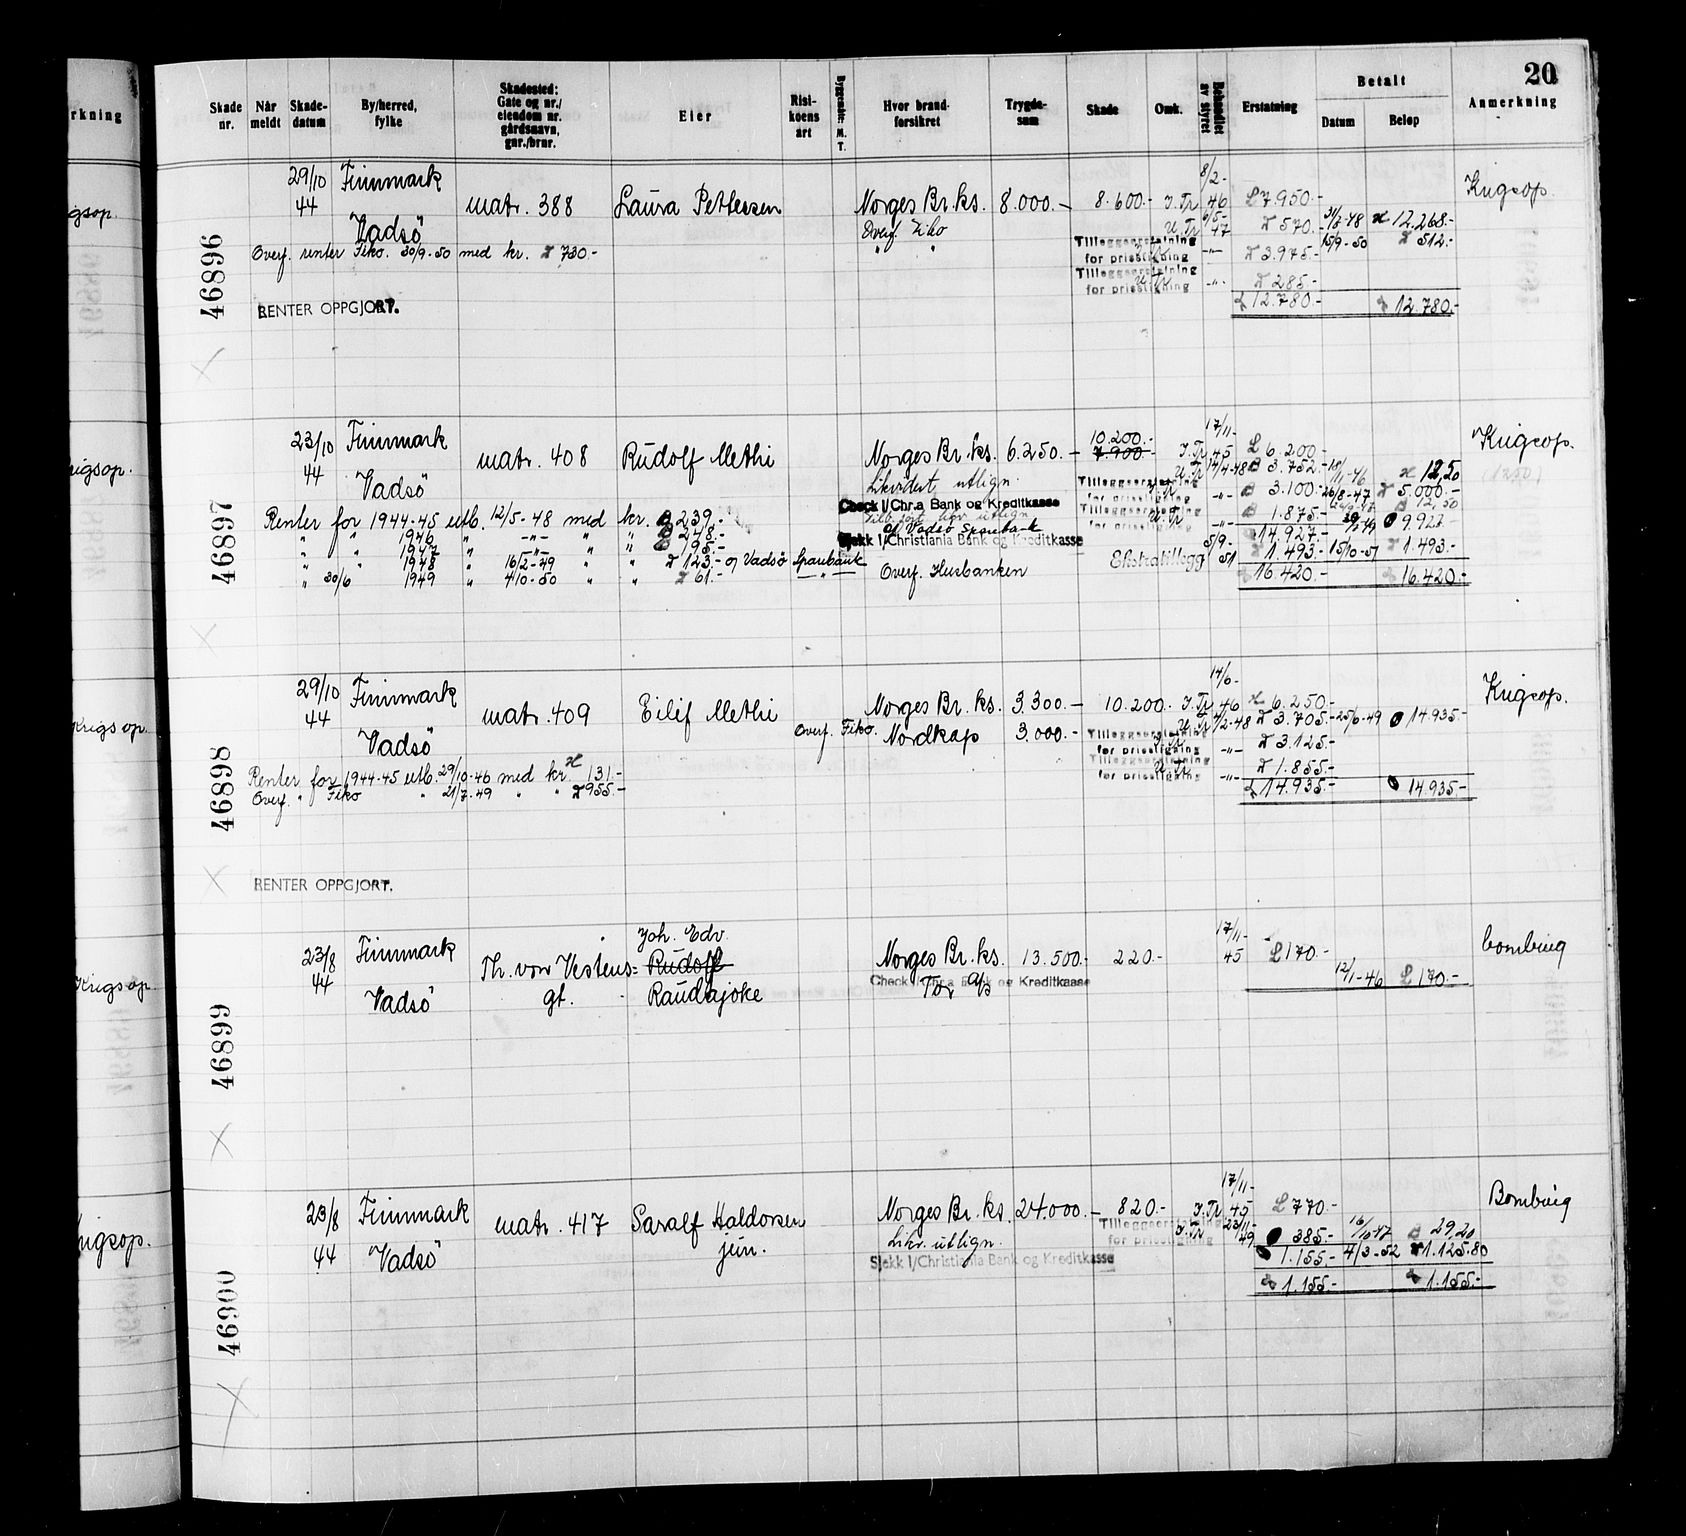 20
Skade nr. Når meldt Skade-datum By/herred, fylke Skadested: Gate og nr./ eiendom nr. gårdsnavn, gnr./bnr. Eier Risi-koens art Hvor brand-forsikret Trygde-sum Skade Omk. Behandlet av styret Erstatning Betalt Datum Beløp Anmerkning
rkning
46896
29/10 44 Finnmark Vadsö matr. 388 Laura Pettersen Norges Br.ks. 8.000.- 8.600.- I.Tr. 8/2-46 7.950.- Krigsop.
Overf. Fiko U.Tr. 6/5-47 570.- 31/8-48 12.268.-
Overf. renter Fiko. 30/9-50 med kr. 730.-
" " Tilleggserstatning for prisstigning -"- 3.975.- 15/9-50 512.-
Tilleggserstatning for prisstigning U.Tr. -"- 285.-
12.780.- 12.780.-
RENTER OPPGJORT.
gsop.
46897
23/10 44 Finnmark Vadsö matr. 408 Rudolf Methi Norges Br.ks. 6.250.- 10.200.- 7.900.- I.Tr. 17/11-45 6.200.- Krigsop.
Likvidert utlign. U.Tr. 14/4-48 3.752.- 18/11-46 12,50 (1250)
Tilleggserstatning for prisstigning -"- 3.100.- 26/8-47 5.000.-
Check I/Chr.a Bank og Kreditkasse
-"- 1.875.- 12,50
Renter for 1944-45 utb. 12/5-48 med kr. 239.-
" " 1946 " -"- " " 248.-
" " 1947 " -"- " " 195.-
" " 1948 " 16/2-49 " " 123.- og Vadsö Sparebank
" 30/6 1949 " 4/10-50 " " 61.- -"-
a/ Vadsö Sparebank
Sjekk I/Christiania Bank og Kreditkasse
14.927.- 9.922.-
Ekstratillegg 5/9-51 1.493.- 15/10-51 1.493.-
Overf. Husbanken 16.420.- 16.420.-
rigsop.
46898
29/10 44 Finnmark Vadsö matr. 409 Eilif Methi Norges Br.ks. 3.300.- 10.200.- I.Tr. 14/6-46 6.250.- Krigsop.
Overf. Fiko. Nordkap 3.000.- U.Tr. 4/2-48 3.705.- 25/6-49 14.935.-
Tilleggserstatning for prisstigning -"- 3.125.-
Tilleggserstatning for prisstigning U.Tr. -"- 1.855.-
Renter for 1944-45 utb. 29/10-46 med kr. 131.-
Overf. " Fiko " 21/7-49 " " 955.-
14.935.- 14.935.-
RENTER OPPGJORT.
Krigsop.
46899
23/8 44 Finnmark Vadsö Th. von Vestens= gt. Joh. Edv. Rudolf Raudajoke Norges Br.ks. 13.500.- 220.- 17/11-45 170.- bombing
Check I/Chr.a Bank og Kreditkasse
12/1-46 170.-
Krigsop.
46900
23/8 44 Finnmark Vadsö matr. 417 Saralf Haldorsen jun. Norges Br.ks. 24.000.- 820.- I.Tr. 17/11-45 770.- Bombing
Likv. utlign. Tilleggserstatning for prisstigning I.Tr. 23/11-49 385.- 16/10-47 29,20
Sjekk I/Christiania Bank og Kreditkasse
1.155.- 4/3-52 1.125.80
1.155.- 1.155.-
rigsop.